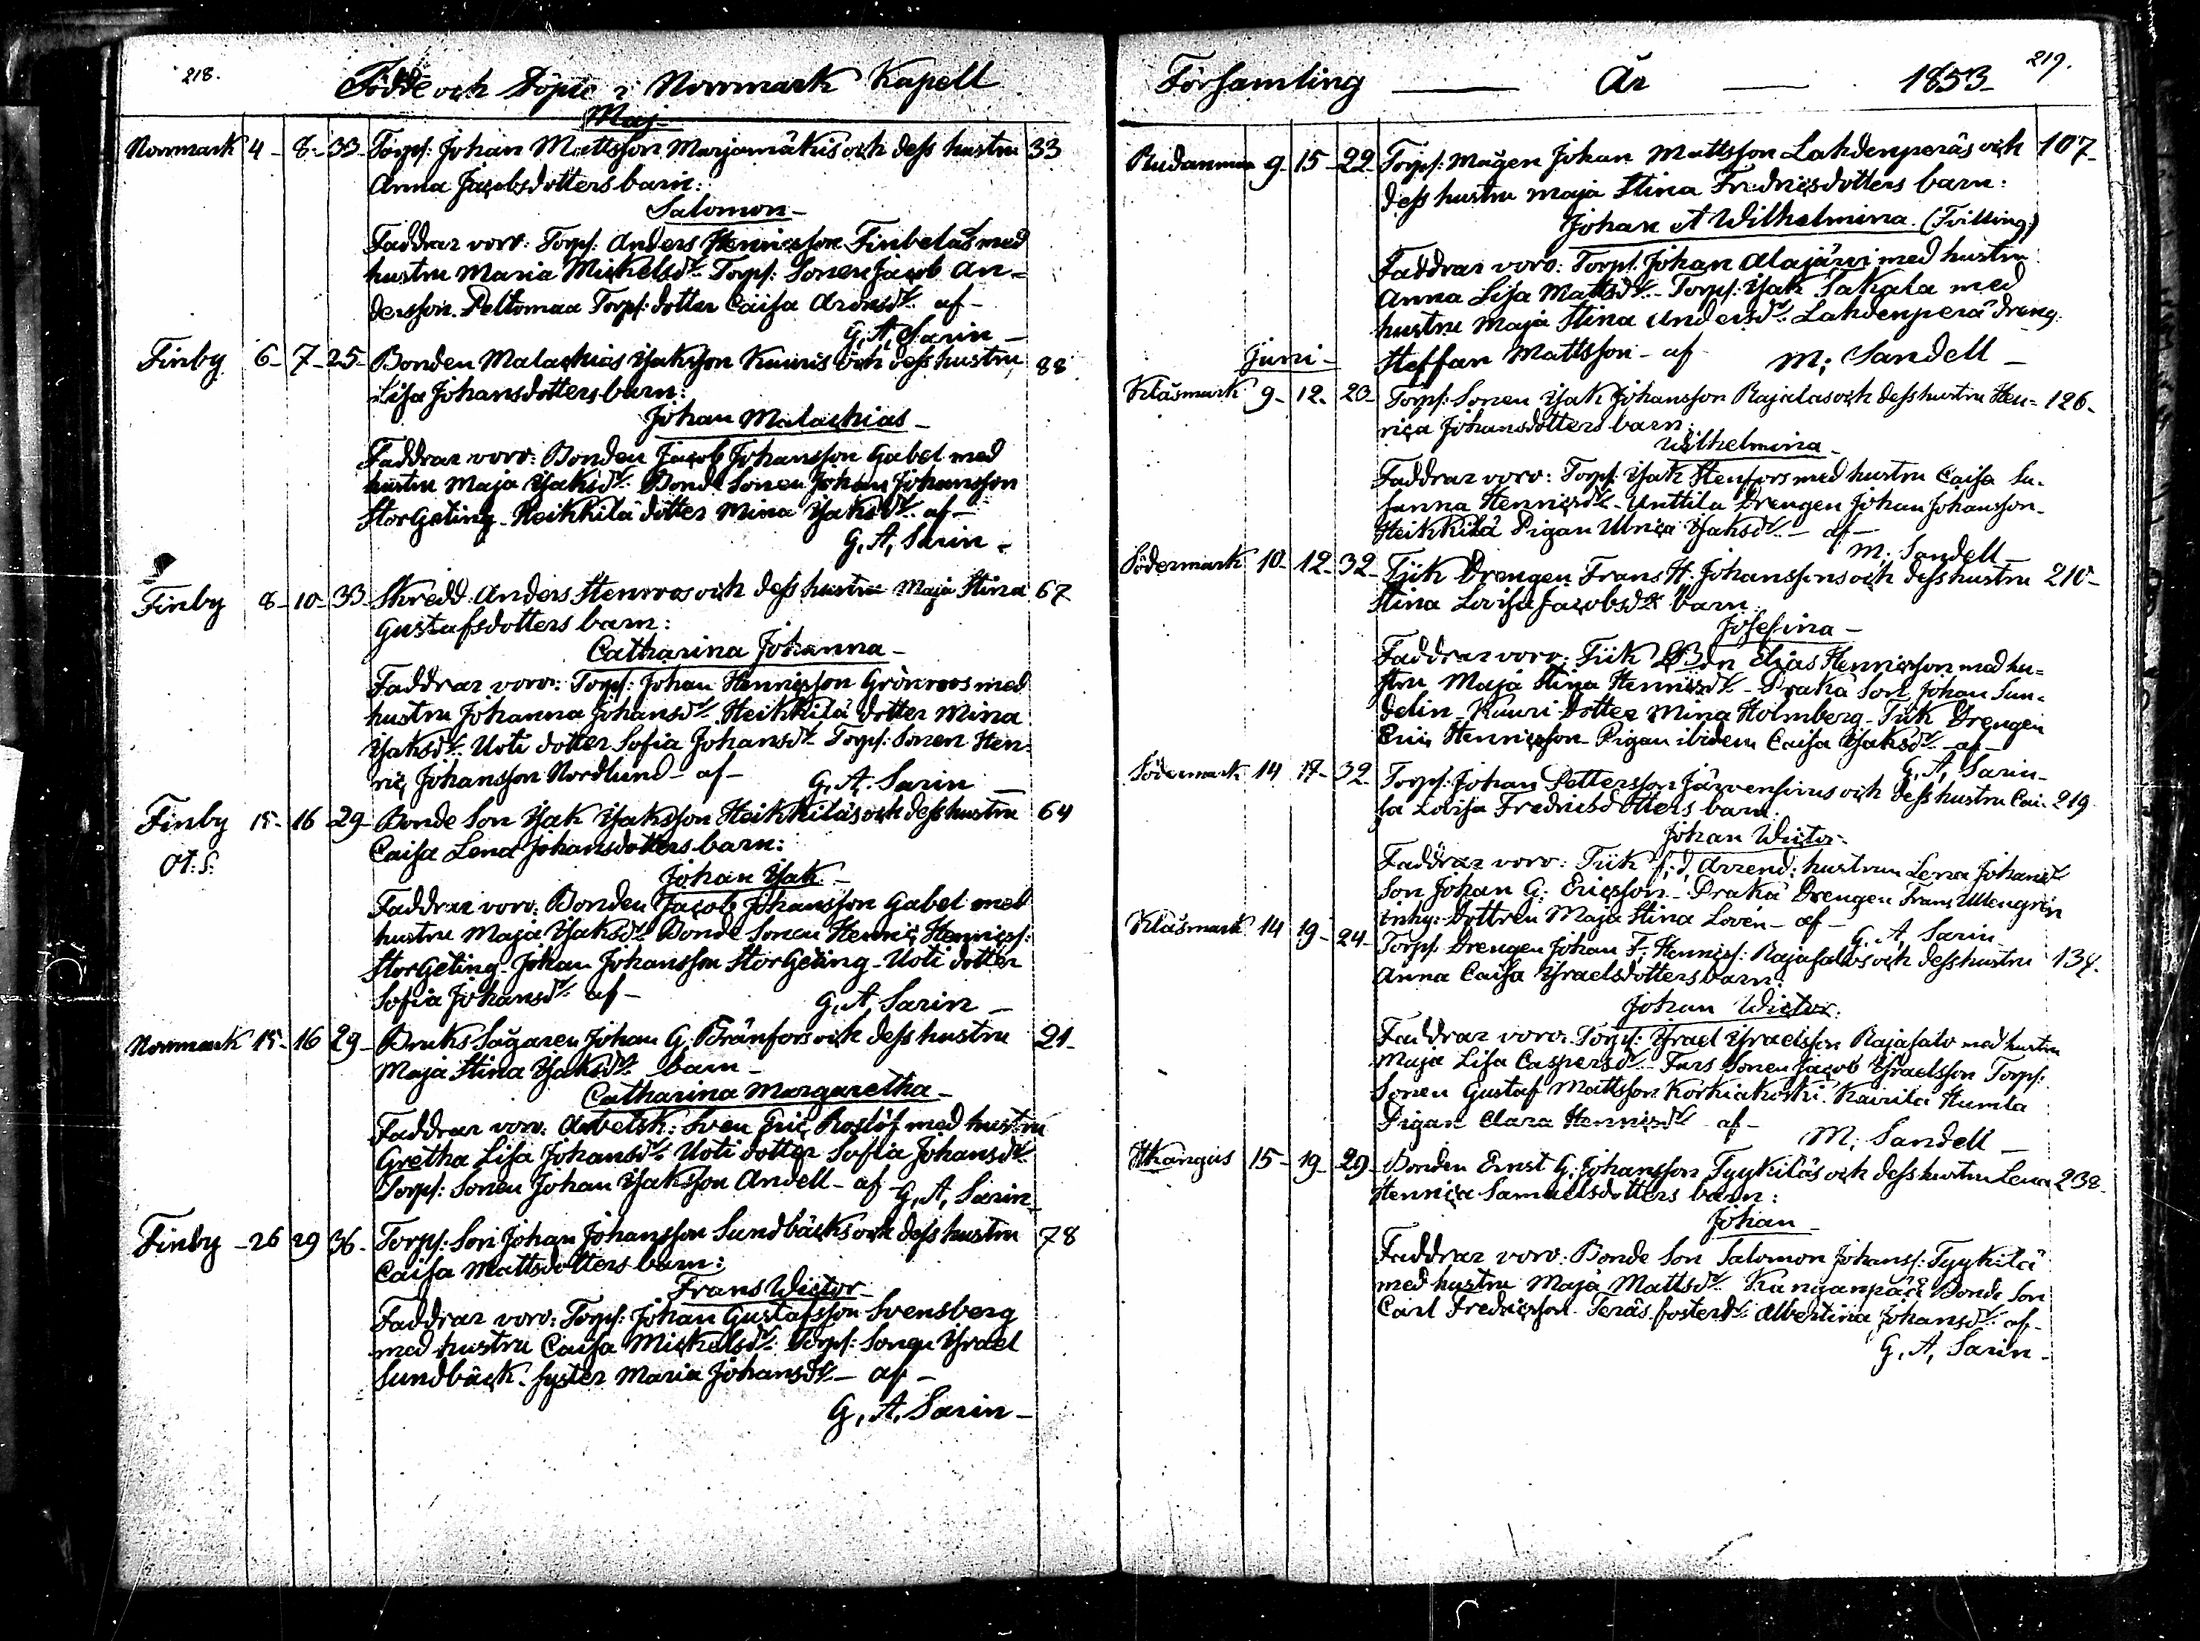 218.
Födde och Döpte i Norrmark Kapell
Maj
Norrmark 4 - 8 - 33 - Torps: Johan Mattsson Marjamäkis och dess hustru 33
Anna Jacobsdotters barn:
Salomon -
Faddrar voro: Torps: Anders Henricsson Finbeläs med
hustru Maria Mickelsdr. Torps: Sonen Jacob An=
dersson Peltomaa Torps: dotter Caisa Aronsdr. af -
G. A. Sarin -
Finby 6 - 7 - 25 - Bonden Malachias Isaksson Kauris och dess hustru 88
Lisa Johansdotters barn:
Johan Malachias -
Faddrar voro: Bonden Jacob Johansson Gabel med
hustru Maja Isaksdr. Bonde Sonen Johan Johansson
Storgeting - Heikkilä dotter Mina Isaksdr. af -
G. A. Sarin -
Finby 8 - 10 - 33 - Skredd. Anders Stenroos och dess hustru Maja Stina 67
Gustafsdotters barn:
Catharina Johanna -
Faddrar voro: Torps: Johan Henricsson Grönroos med
hustru Johanna Johansdr. Heikkilä dotter Mina
Isaksdr. Uoti dotter Sofia Johansdr. Torps: Sonen Hen-
ric Johansson Nordlund - af - G. A. Sarin -
Finby 15 - 16 29 - Bonde Son Isak Isaksson Heikkiläs och dess hustru 64
Ot: S: Caisa Lena Johansdotters barn:
Johan Isak -
Faddrar voro: Bonden Jacob Johansson Gabel med
hustru Maja Isaksdr. Bonde Sonen Henric Henricss:
Storgeting - Johan Johansson Storgeting - Uoti dotter
Sofia Johansdr. af - G. A. Sarin -
Norrmark 15 - 16 29 - Bruks Sågaren Johan G. Bränfors och dess hustru 21 -
Maja Stina Isaksdr. barn -
Catharina Margaretha -
Faddrar voro: Arbetsk: Sven Eric Roslöf med hustru
Gretha Lisa Johansdr. Uoti dotter Sofia Johansdr.
Torps: Sonen Johan Isaksson Andell - af - G. A. Sarin -
Finby - 26 29 36 - Torps: Son Johan Johansson Sundbäcks och dess hustru 78
Caisa Mattsdotters barn:
Frans Wictor -
Faddrar voro: Torps: Johan Gustafsson Svensberg
med hustru Caisa Mickelsdr. Torps: Sonen Israel
Sundbäck - Syster Maria Johansdr. - af -
G. A. Sarin -
219.
Församling - År - 1853 -
Rudanmaa 9 - 15 - 22 - Torps: Mågen Johan Mattsson Lahdenperäs och 107 -
dess hustru Maja Stina Fredricsdotters barn:
Johan et Wilhelmina. (Tvilling)
Faddrar voro: Torps: Johan Alajärvi med hustru
Anna Lisa Mattsdr. - Torps: Isak Takala med
hustru Maja Stina Andersdr. Lahdenperä dreng.
Steffan Mattsson - af M: Sandell -
Juni -
Klåsmark 9 - 12 - 23 - Torps: Sonen Isak Johansson Rajalas och dess hustru Hen- 126 -
rica Johansdotters barn:
Wilhelmina -
Faddrar voro: Torps: Isak Stenfors med hustru Caisa Su-
sanna Henricsdr. - Unttila Drengen Johan Johansson -
Heikkilä Pigan Ulrica Isaksdr. - af -
M. Sandell -
Södermark 10 - 12 - 32 - Tjik Drengen Frans H. Johanssons och dess hustru 210 -
Stina Lovisa Jacobsdr. barn
Josefina -
Faddrar voro: Tiik Bdn Elias Henricsson med hu=
stru Maja Stina Henricsdr. - Praka Son Johan Sun-
delin - Kauri dotter Mina Holmberg - Tiik Drengen
Eric Henricsson - Pigan ibidem Caisa Isaksdr. - af -
G. A. Sarin -
Södermark 14 17 - 32 - Torps: Johan Pettersson Järvensivus och dess hustru Cai- 219
sa Lovisa Fredricsdotters barn
Johan Wictor -
Faddrar voro: Tiik f. d. Arrend: hustrun Lena Johansdr.
Son Johan G: Ericsson - Praka Drengen Frans Wengrén
Inhy: dottren Maja Stina Lovén - af -
G. A. Sarin -
Klåsmark 14 19 - 24 - Torps. Drengen Johan F. Henricss: Rajasalos och dess hustru 134.
Anna Caisa Israelsdotters barn:
Johan Wictor.
Faddrar voro: Torps: Israel Israelsson Rajasalo med hustru
Maja Lisa Caspersdr. - Fars Sonen Jacob Israelsson Torps:
Sonen Gustaf Mattsson Korkiakoski. Kairila Humla
Pigan Clara Henricsdr. af -
M. Sandell -
Hkangus 15 - 19 - 29 - Bonden Ernst G. Johansson Tyykiläs och dess hustru Lena 238 -
Henrica Samuelsdotters barn:
Johan -
Faddrar voro: Bonde Son Salomon Johanss: Tyykilä
med hustru Maja Mattsdr. Kanganpää Bonde Son
Carl Fredricsson - Teräs fosterdr. Albertina Johansdr. af -
G. A. Sarin -